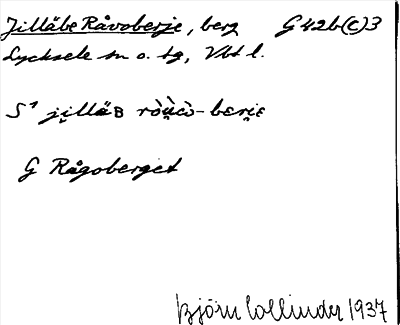 Jillãbe Råvoberje, berg G 42b(c)3
Lycksele sn o. tg, Vbt l.
S¹ ji̮llãʙ ròu̮̇cò-bɛri̮ɛ
G Rågoberget
Björn Collinder 1937